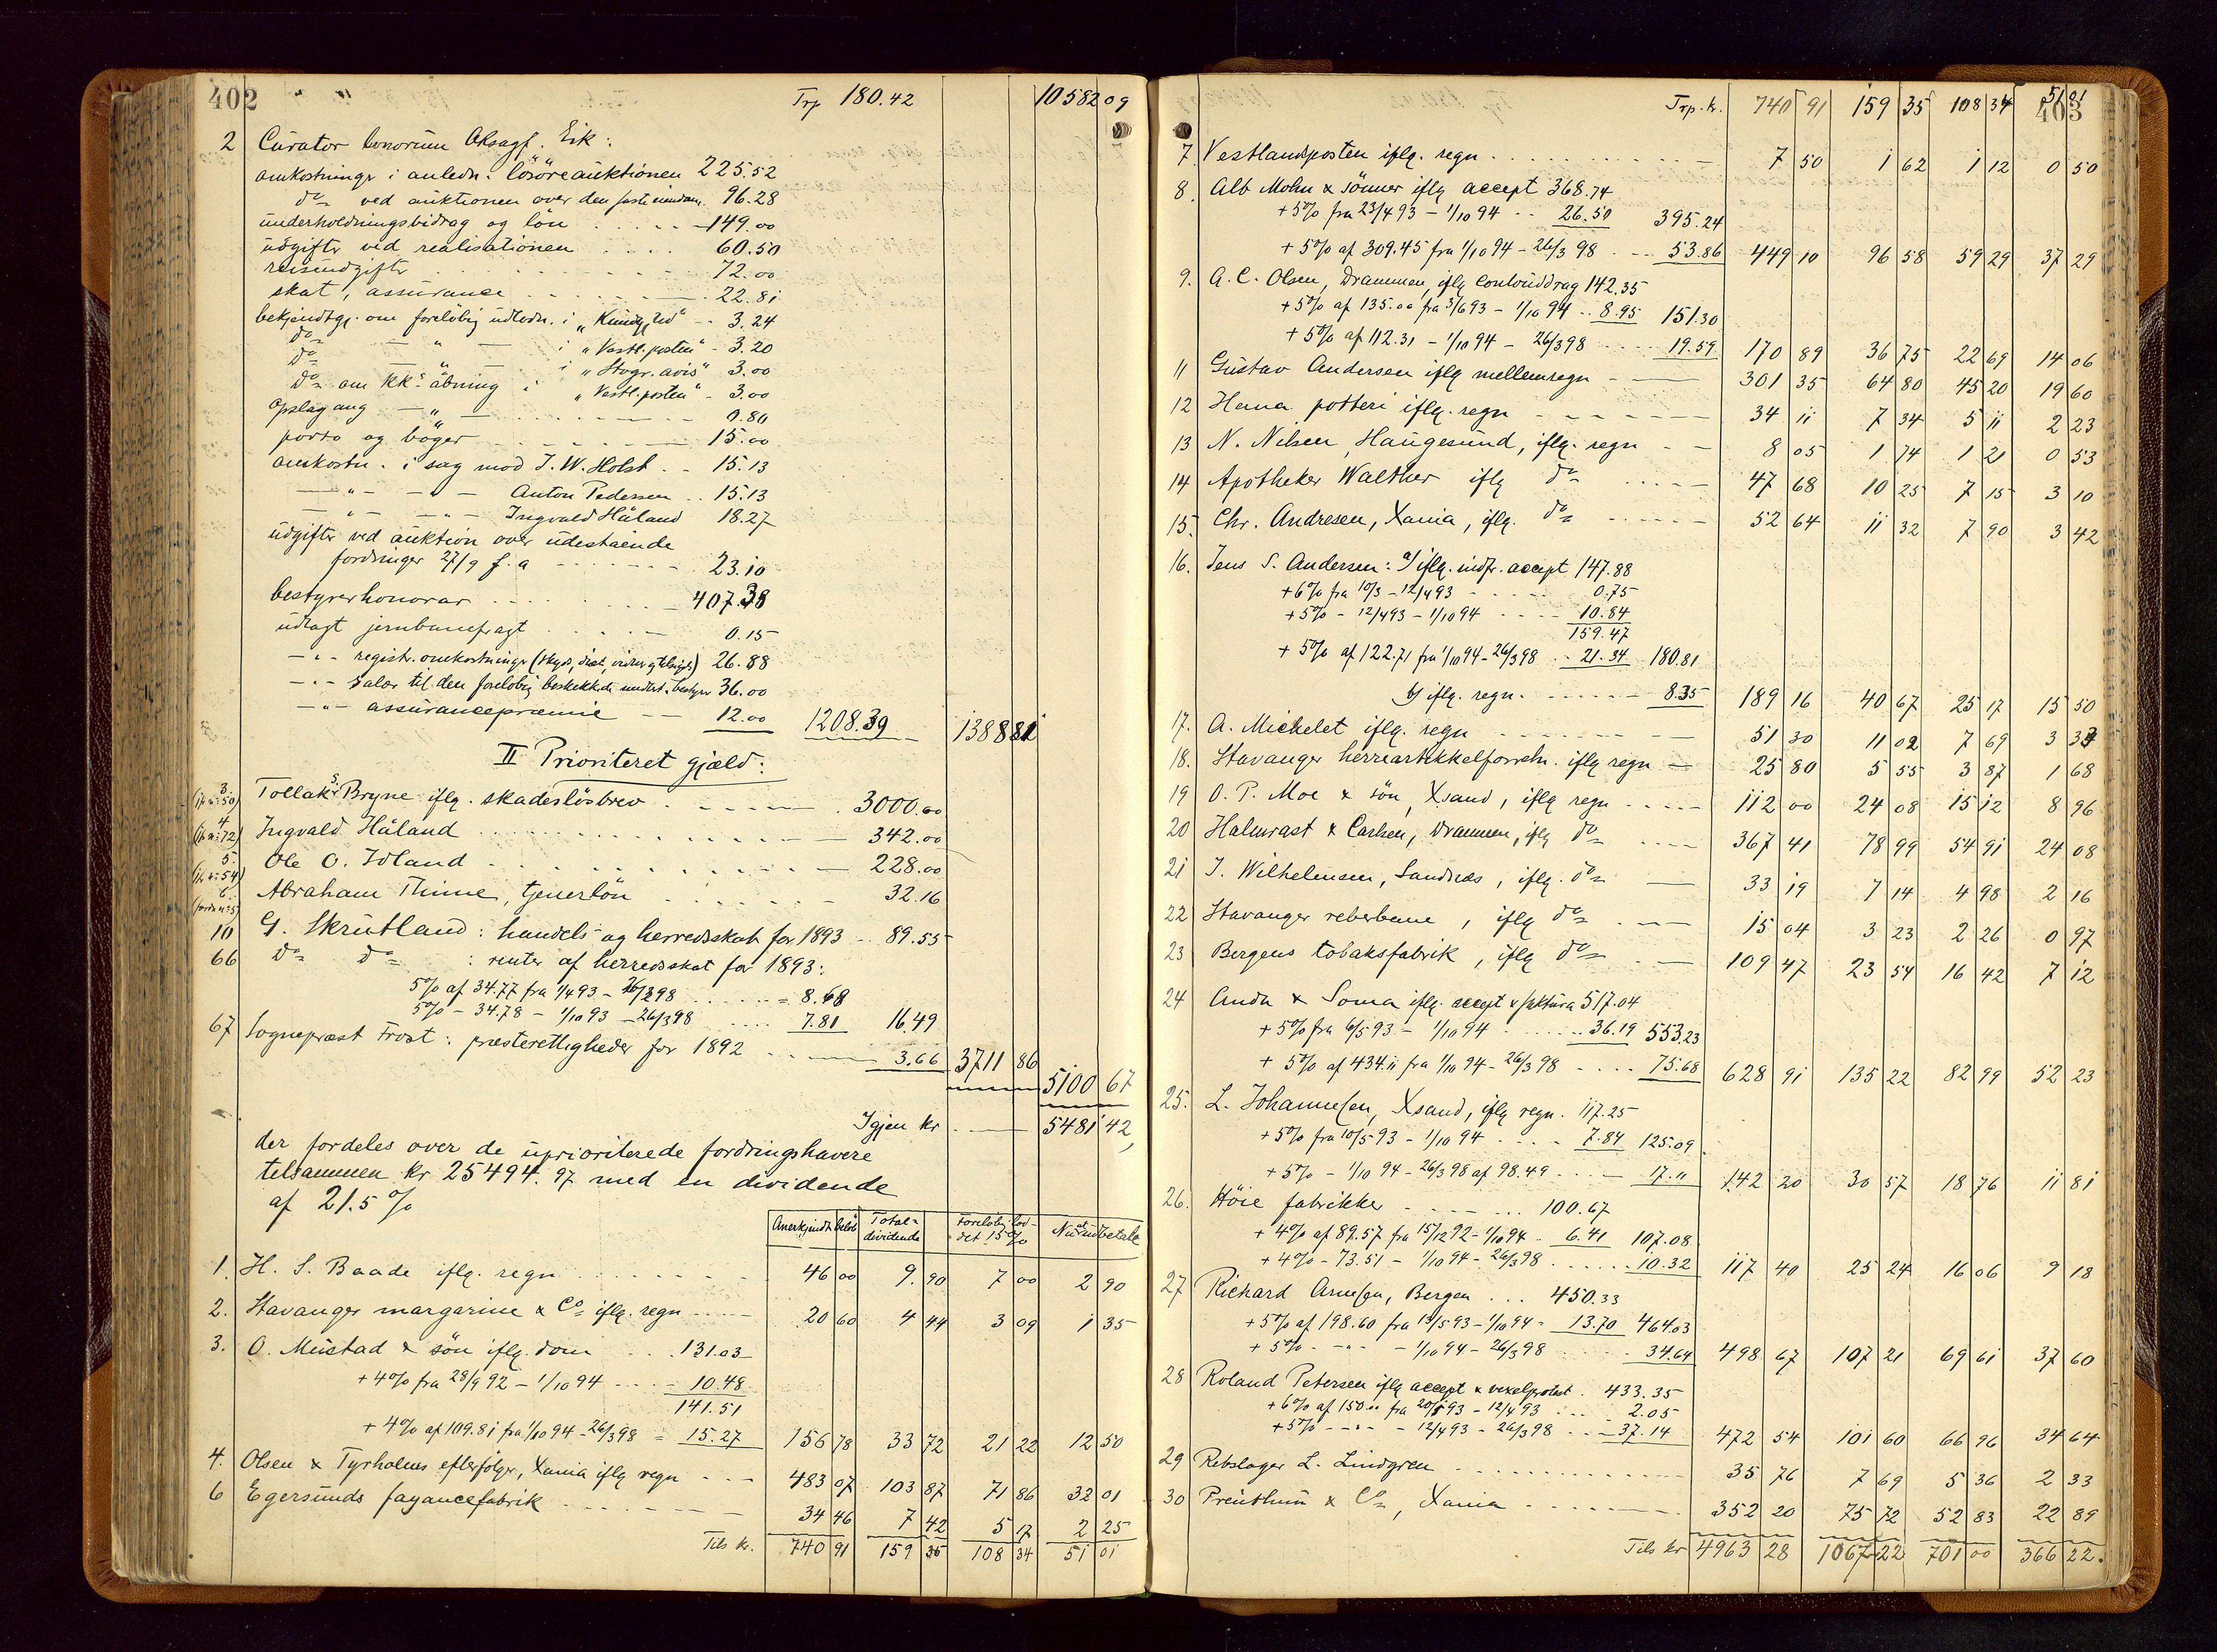 402
Trp 180.42 10582 09
2 Curator bonorum Oksagf. Eik:
omkostninger i anledn. lösöreauktionen 225.52
do ved auktionen over den faste eiendom. 96.28
underholdningsbidrag og lön 149.00
udgifter ved realisationen 60.50
reiseudgifter 72.00
skat, assurance 22.81
bekjendtgj. om foreløbig udlodn. i "Kundg.tid" 3.24
do — " — i "Vestl.posten" 3.20
do — " — i "Stvgr. avis" 3.00
do om KKs åbning i "Vestl.posten" 3.00
Opslag ang — " — 0.80
porto og böger 15.00
omkostn. i sag mod J. W. Holst 15.13
— " — — " — Anton Pedersen 15.13
— " — — " — Ingvald Håland 18.27
udgifter ved auktion over udestående
fordringer 27/9 f. a 23.10
bestyrerhonorar 407.38
udlagt jernbanefragt 0.15
— " — registr. omkostninger (skyds, diæt, vidner g tilsigt) 26.88
— " — salær til den foreløbig beskikkede medbest. bestyrer 36.00
— " — assurancepræmie 12.00 1208.39 1388 81
II Prioriteret gjæld:
3 (jfr no 50) Tollak S. Bryne iflg. skadeslösbrev 3000.00
4 (jfr no 72) Ingvald Håland 342.00
5. (jfr no 54) Ole O. Idland 228.00
6 Abraham Thime, tjenerlön 32.16
10 G. Skrutland: handels- og herredsskat for 1893 89.55
66 do do : renter af herredsskat for 1893:
5% af 34.77 fra 1/4 93 - 26/3 98 = 8.68
5% - 34.78 - 1/10 93 - 26/3 98 7.81 16.49
67 Sognepræst Frost: præsterettigheder for 1892 3.66 3711 86
5100 67
Igjen kr 5481 42,
der fordeles over de uprioriterede fordringshavere
tilsammen kr 25494.97 med en dividende
af 21.5 %
Anerkjendt beløb Total-dividende Foreløbig lod-det 15% Nu at udbetale
1. H. S. Baade iflg. regn 46 00 9 90 7 00 2 90
2. Stavanger margarine & Co iflg. regn 20 60 4 44 3 09 1 35
3. O. Mustad & sön iflg. dom 131.03
+ 4% fra 28/9 92 - 1/10 94 10.48
141.51
+ 4% af 109.81 fra 1/10 94 - 26/3 98 = 15.27 156 78 33 72 21 22 12 50
4. Olsen & Tyrholms efterfölger, Xania iflg regn 483 07 103 87 71 86 32 01
6 Egersunds fayancefabrik 34 46 7 42 5 17 2 25
Tils kr. 740 91 159 35 108 34 51 01
403
Trp. kr. 740 91 159 35 108 34 51 01
7 Vestlandsposten iflg. regn 7 50 1 62 1 12 0 50
8. Alb Mohn & sönner iflg accept 368.74
+ 5% fra 23/4 93 - 1/10 94 26.50 395.24
+ 5% af 309.45 fra 1/10 94 - 26/3 98 53.86 449 10 96 58 59 29 37 29
9. A. C. Olsen, Drammen, iflg Contoudrag 142.35
+ 5% af 135.00 fra 3/6 93 - 1/10 94 8.95 151.30
+ 5% af 112.31 - 1/10 94 - 26/3 98 19.59 170 89 36 75 22 69 14 06
11 Gustav Andersen iflg mellemregn 301 35 64 80 45 20 19 60
12 Hana potteri iflg. regn 34 11 7 34 5 11 2 23
13 N. Nilsen, Haugesund, iflg. regn 8 05 1 74 1 21 0 53
14 Apotheker Walther iflg do 47 68 10 25 7 15 3 10
15. Chr. Andresen, Xania, iflg. do 52 64 11 32 7 90 3 42
16. Jens S. Andersen: a) iflg. indfr. accept 147.88
+ 6% fra 10/3 - 12/4 93 0.75
+ 5% - 12/4 93 - 1/10 94 10.84
159.47
+ 5% af 122.71 fra 1/10 94 - 26/3 98 21.34 180.81
b) iflg. regn. 8.35 189 16 40 67 25 17 15 50
17. A. Michelet iflg. regn 51 30 11 02 7 69 3 33
18. Stavanger herreartikkelforretn. iflg regn 25 80 5 55 3 87 1 68
19 O. P. Moe & sön, Xsand, iflg regn 112 00 24 08 15 12 8 96
20 Halmrast & Carlsen, Drammen, iflg do 367 41 78 99 54 91 24 08
21 J. Wilhelmsen, Sandnæs, iflg. do 33 19 7 14 4 98 2 16
22 Stavanger reberbane, iflg do 15 04 3 23 2 26 0 97
23 Bergens tobaksfabrik, iflg do 109 47 23 54 16 42 7 12
24 Anda & Soma iflg. accept & faktura 517.04
+ 5% fra 6/5 93 - 1/10 94 36.19 553.23
+ 5% af 434.11 fra 1/10 94 - 26/3 98 75.68 628 91 135 22 82 99 52 23
25. L. Johannesen, Xsand, iflg regn. 117.25
+ 5% fra 10/5 93 - 1/10 94 7.84 125.09
+ 5% - 1/10 94 - 26/3 98 af 98.49 17.11 142 20 30 57 18 76 11 81
26. Höie fabrikker 100.67
+ 4% af 89.57 fra 15/12 92 - 1/10 94 6.41 107.08
+ 4% - 73.51 - 1/10 94 - 26/3 98 10.32 117 40 25 24 16 06 9 18
27 Richard Arnesen, Bergen 450.33
+ 5% af 198.60 fra 13/5 93 - 1/10 94 - 13.70 464.03
+ 5% - — " — - 1/10 94 - 26/3 98 34.64 498 67 107 21 69 61 37 60
28 Roland Petersen iflg accept & vexelprotest 433.35
+ 6% af 150.00 fra 20/1 93 - 12/4 93 2.05
+ 5% — " — - 12/4 93 - 26/3 98 37.14 472 54 101 60 66 96 34 64
29 Rebslager L. Lindgren 35 76 7 69 5 36 2 33
30 Preuthun & Co, Xania 352 20 75 72 52 83 22 89
Tils kr 4963 28 1067 22 701 00 366 22.